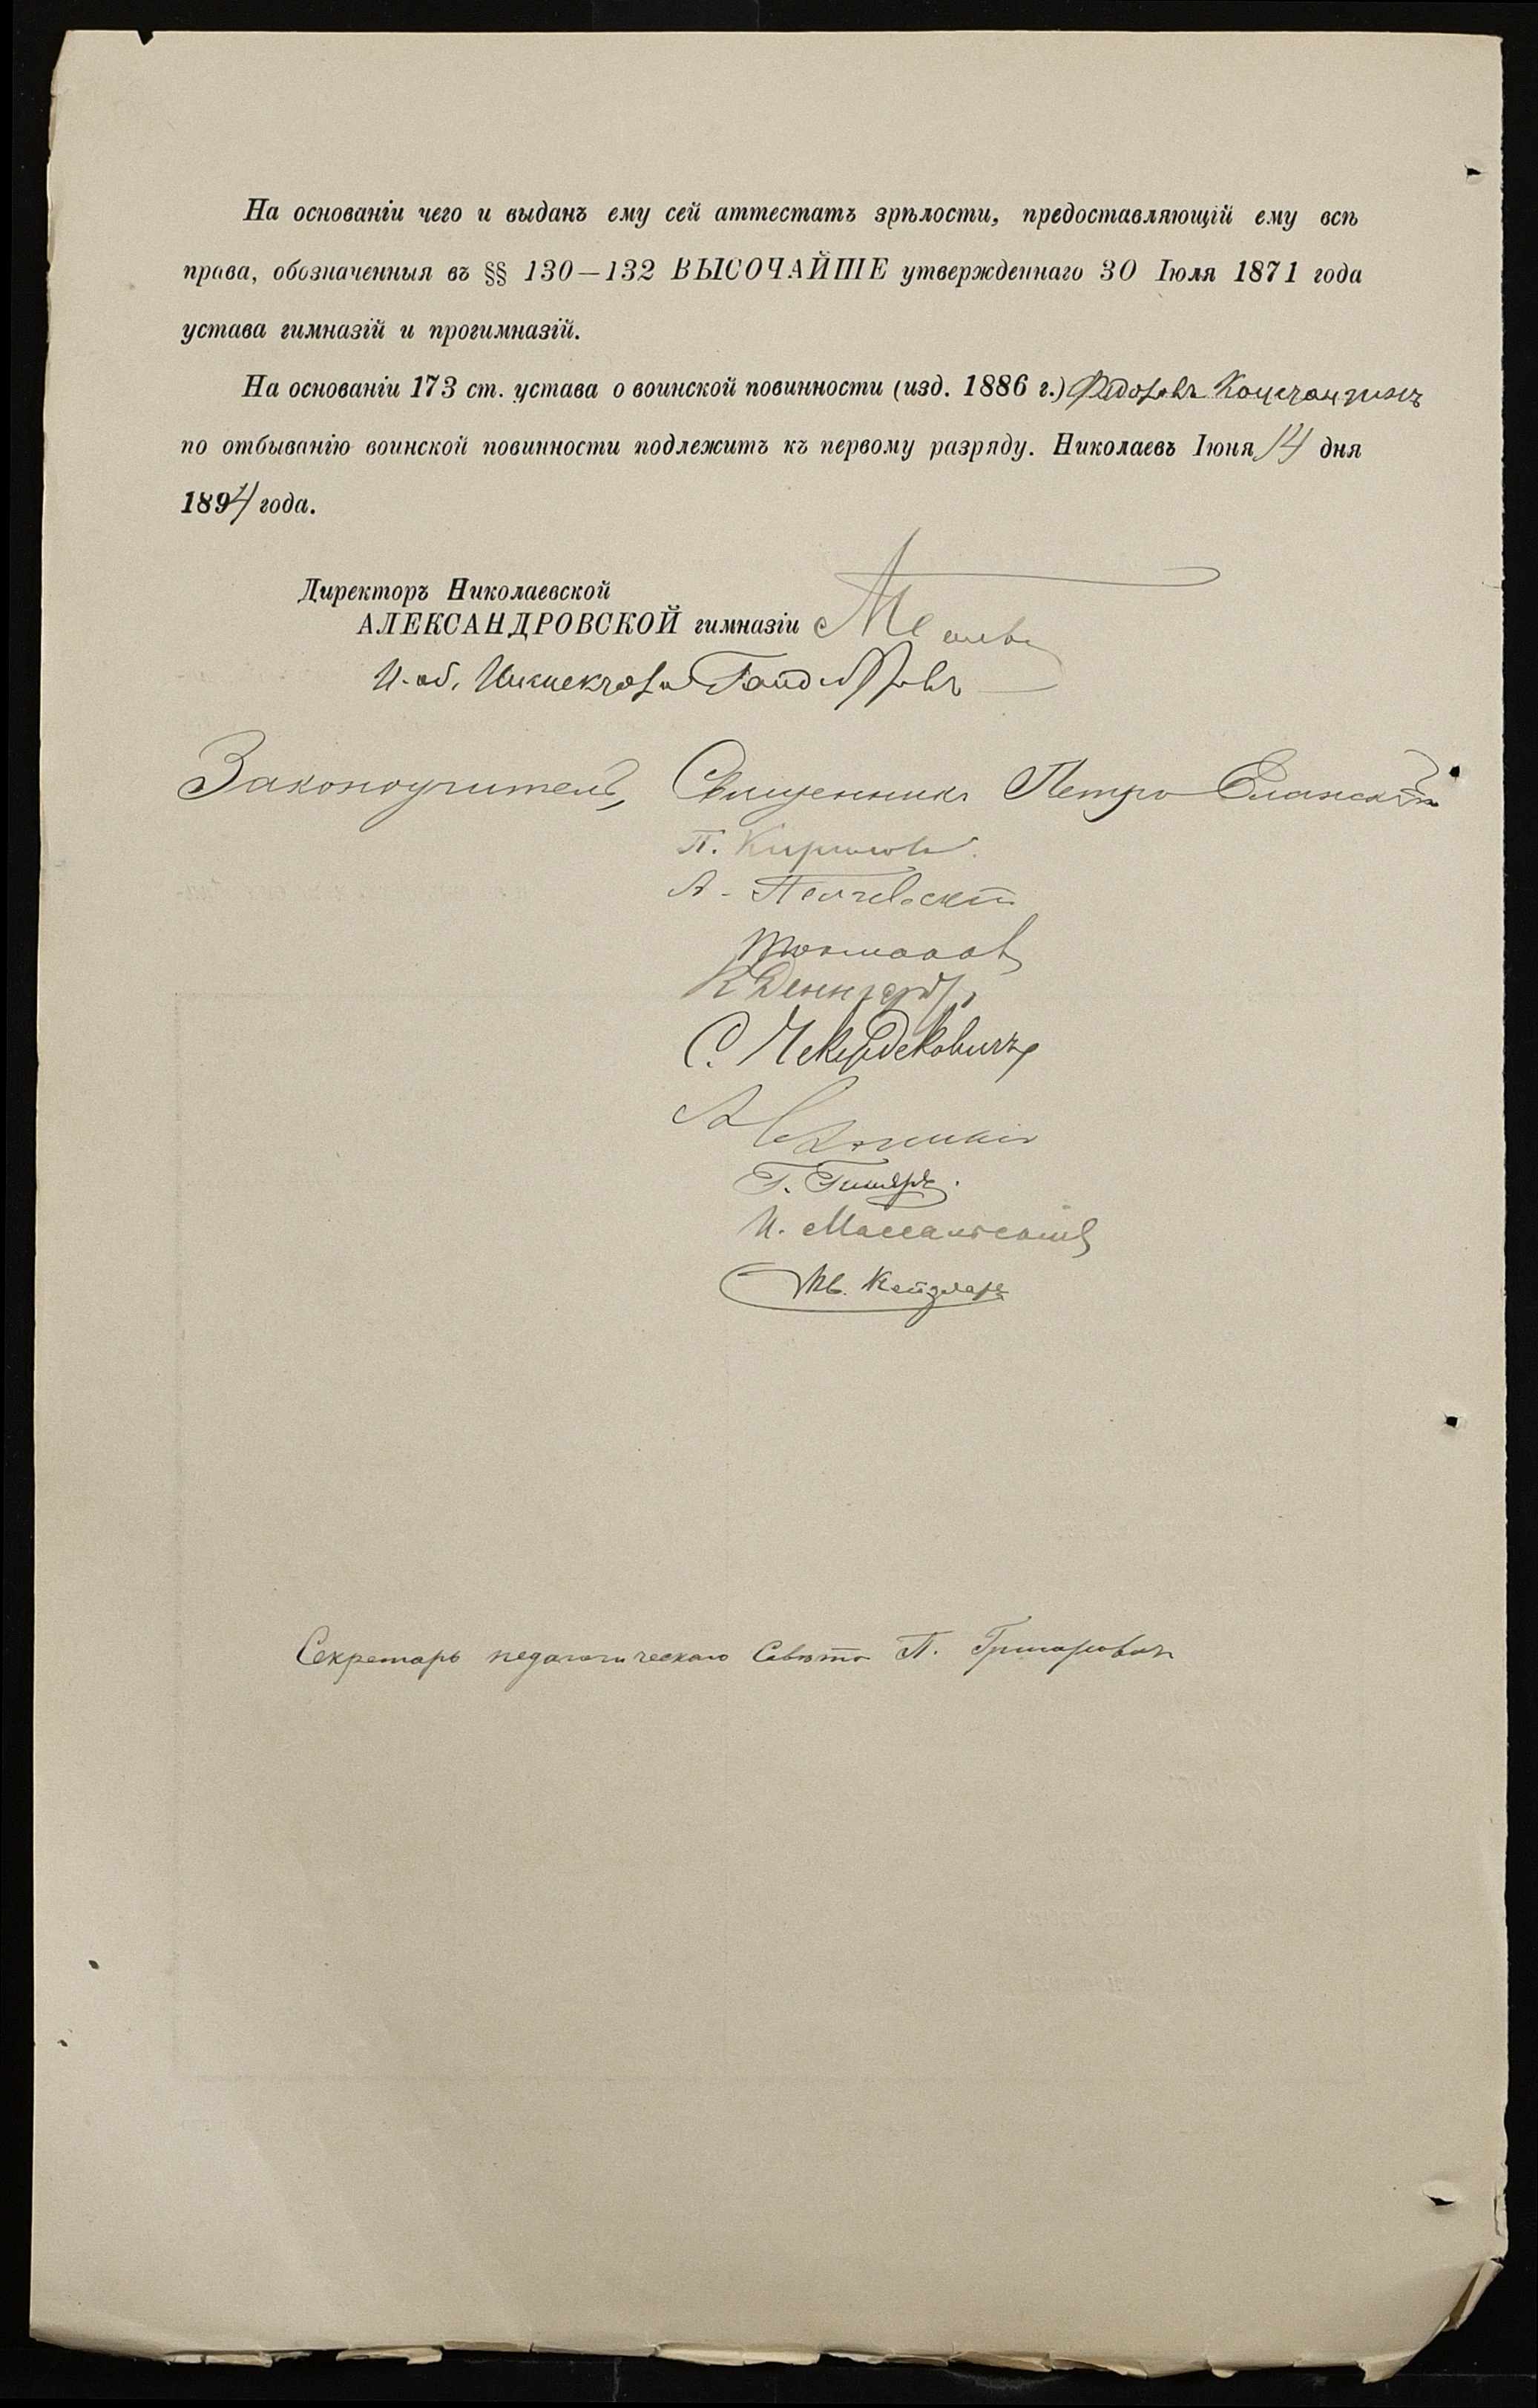 На основаніи чего и выданъ ему сей аттестатъ зрѣлости, предоставляющій ему всѣ
права, обозначенныя въ §§ 130—132 ВЫСОЧАЙШЕ утвержденнаго 30 Іюля 1871 года
устава гимназій и прогимназій.
На основаніи 173 ст. устава о воинской повинности (изд. 1886 г.) Федоровъ Константинъ
по отбыванію воинской повинности подлежитъ къ первому разряду. Николаевъ Іюня 14 дня
1894 года.
Директоръ Николаевской
АЛЕКСАНДРОВСКОЙ гимназіи
И. об. Инспектора
Законоучитель, Священникъ Петръ Еланскій
П.
А.
К
С.
А
Г.
И.
Ив.
Секретарь педагогическаго Совѣта П. Григоровичъ